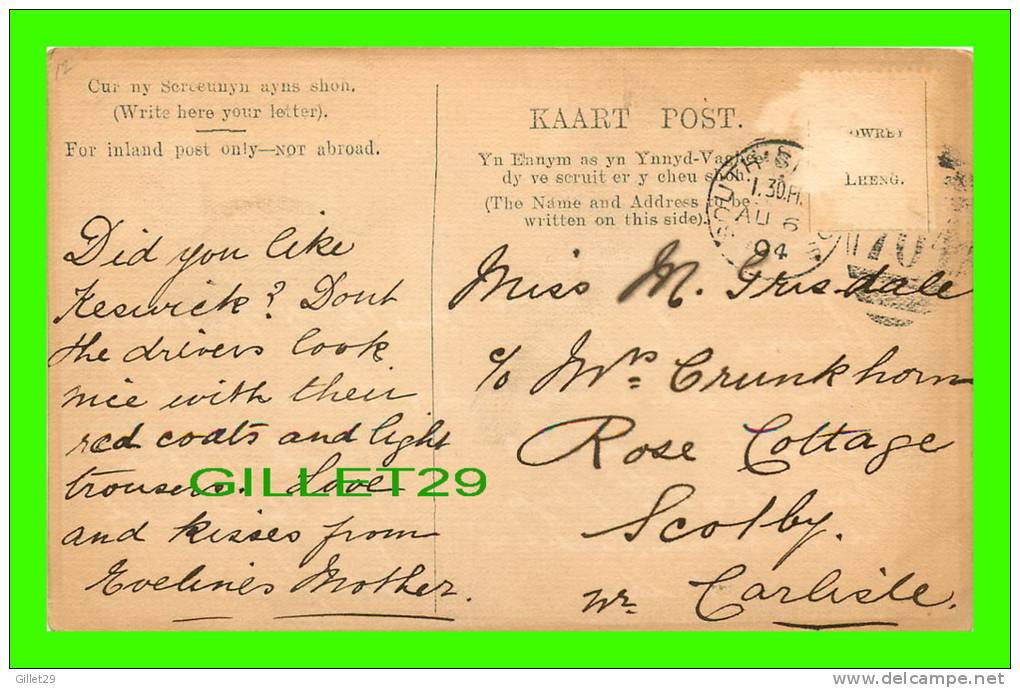 12
Cur ny Screeunyn ayns shoh.
(Write here your letter).
For inland post only—NOT abroad.
KAART POST.
Yn Ennym as yn Ynnyd-Vaghee
dy ve scruit er y cheu shoh.
(The Name and Address to be
written on this side).
OWREY
LHENG.
1.30.PM
AU 6
94
Did you like
Keswick? Dont
the drivers look
nice with their
red coats and light
trousers. Love
and kisses from
Eveline's Mother.
Miss M. Grisdale
c/o Mrs Crunkhorn
Rose Cottage
Scotby.
nr. Carlisle.
GILLET29
Gillet29
www.delcampe.net